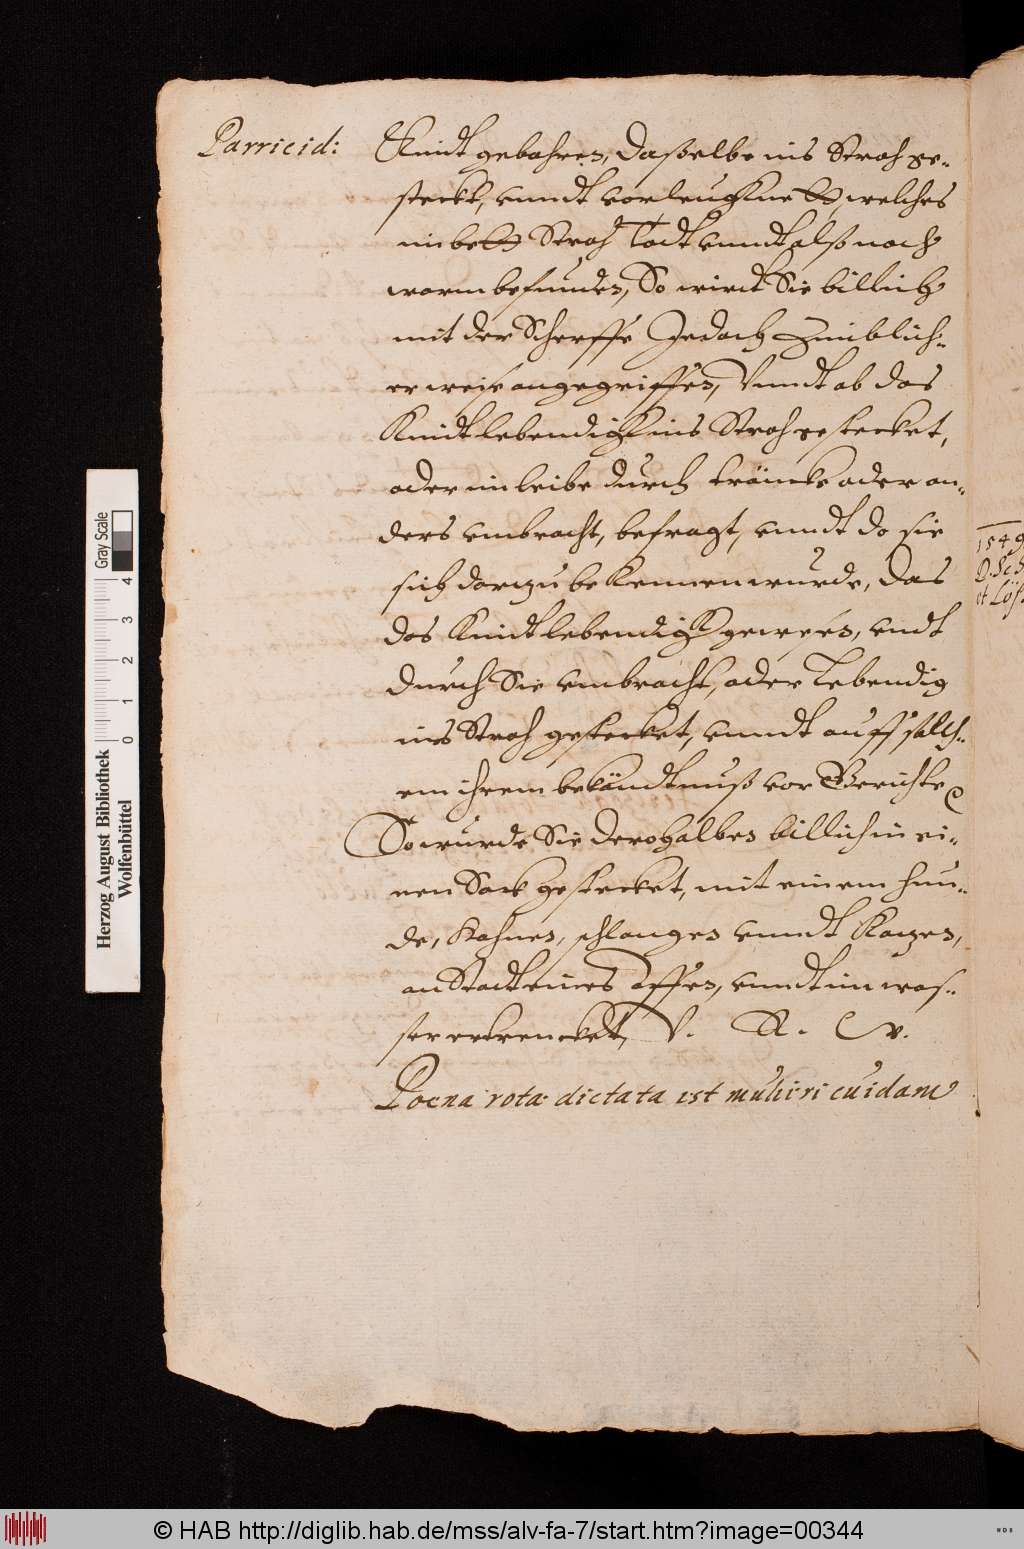 Parricid:
Kindt gebohren, Daßelbe ins Stroh ge-
steckt, unndt vorleugknett, welches
im bett Stroh Todt unndt also noch
warm befunden, So wird Sie billich
mit der Scherffe Jedoch Zimblich-
er weise angegriffen, Vnndt ob das
Kindt lebendigk ins Stroh gestecket,
oder im leibe durch träncke oder an-
ders umbracht, befragt, unndt do sie
sich darzu bekennen wurde, Das
das Kindt lebendigk gewesen, undt
durch Sie umbracht, oder Lebendig
ins Stroh gestecket, unndt auff solch-
em ihrem bekändtnuß vor Gerichte
So wurde Sie derohalben billich in ei-
nen Sack gestecket, mit einem Hun-
de, Hahnen, schlangen unndt Katzen,
an Stadt eines Affen, unndt im was-
ser ertrenckett, V. R. W.
Poena rotæ dictata est mulieri cuidam
1549
D. Sch
et Löß
Gray Scale
4
3
2
1
0
Herzog August Bibliothek
Wolfenbüttel
© HAB http://diglib.hab.de/mss/alv-fa-7/start.htm?image=00344